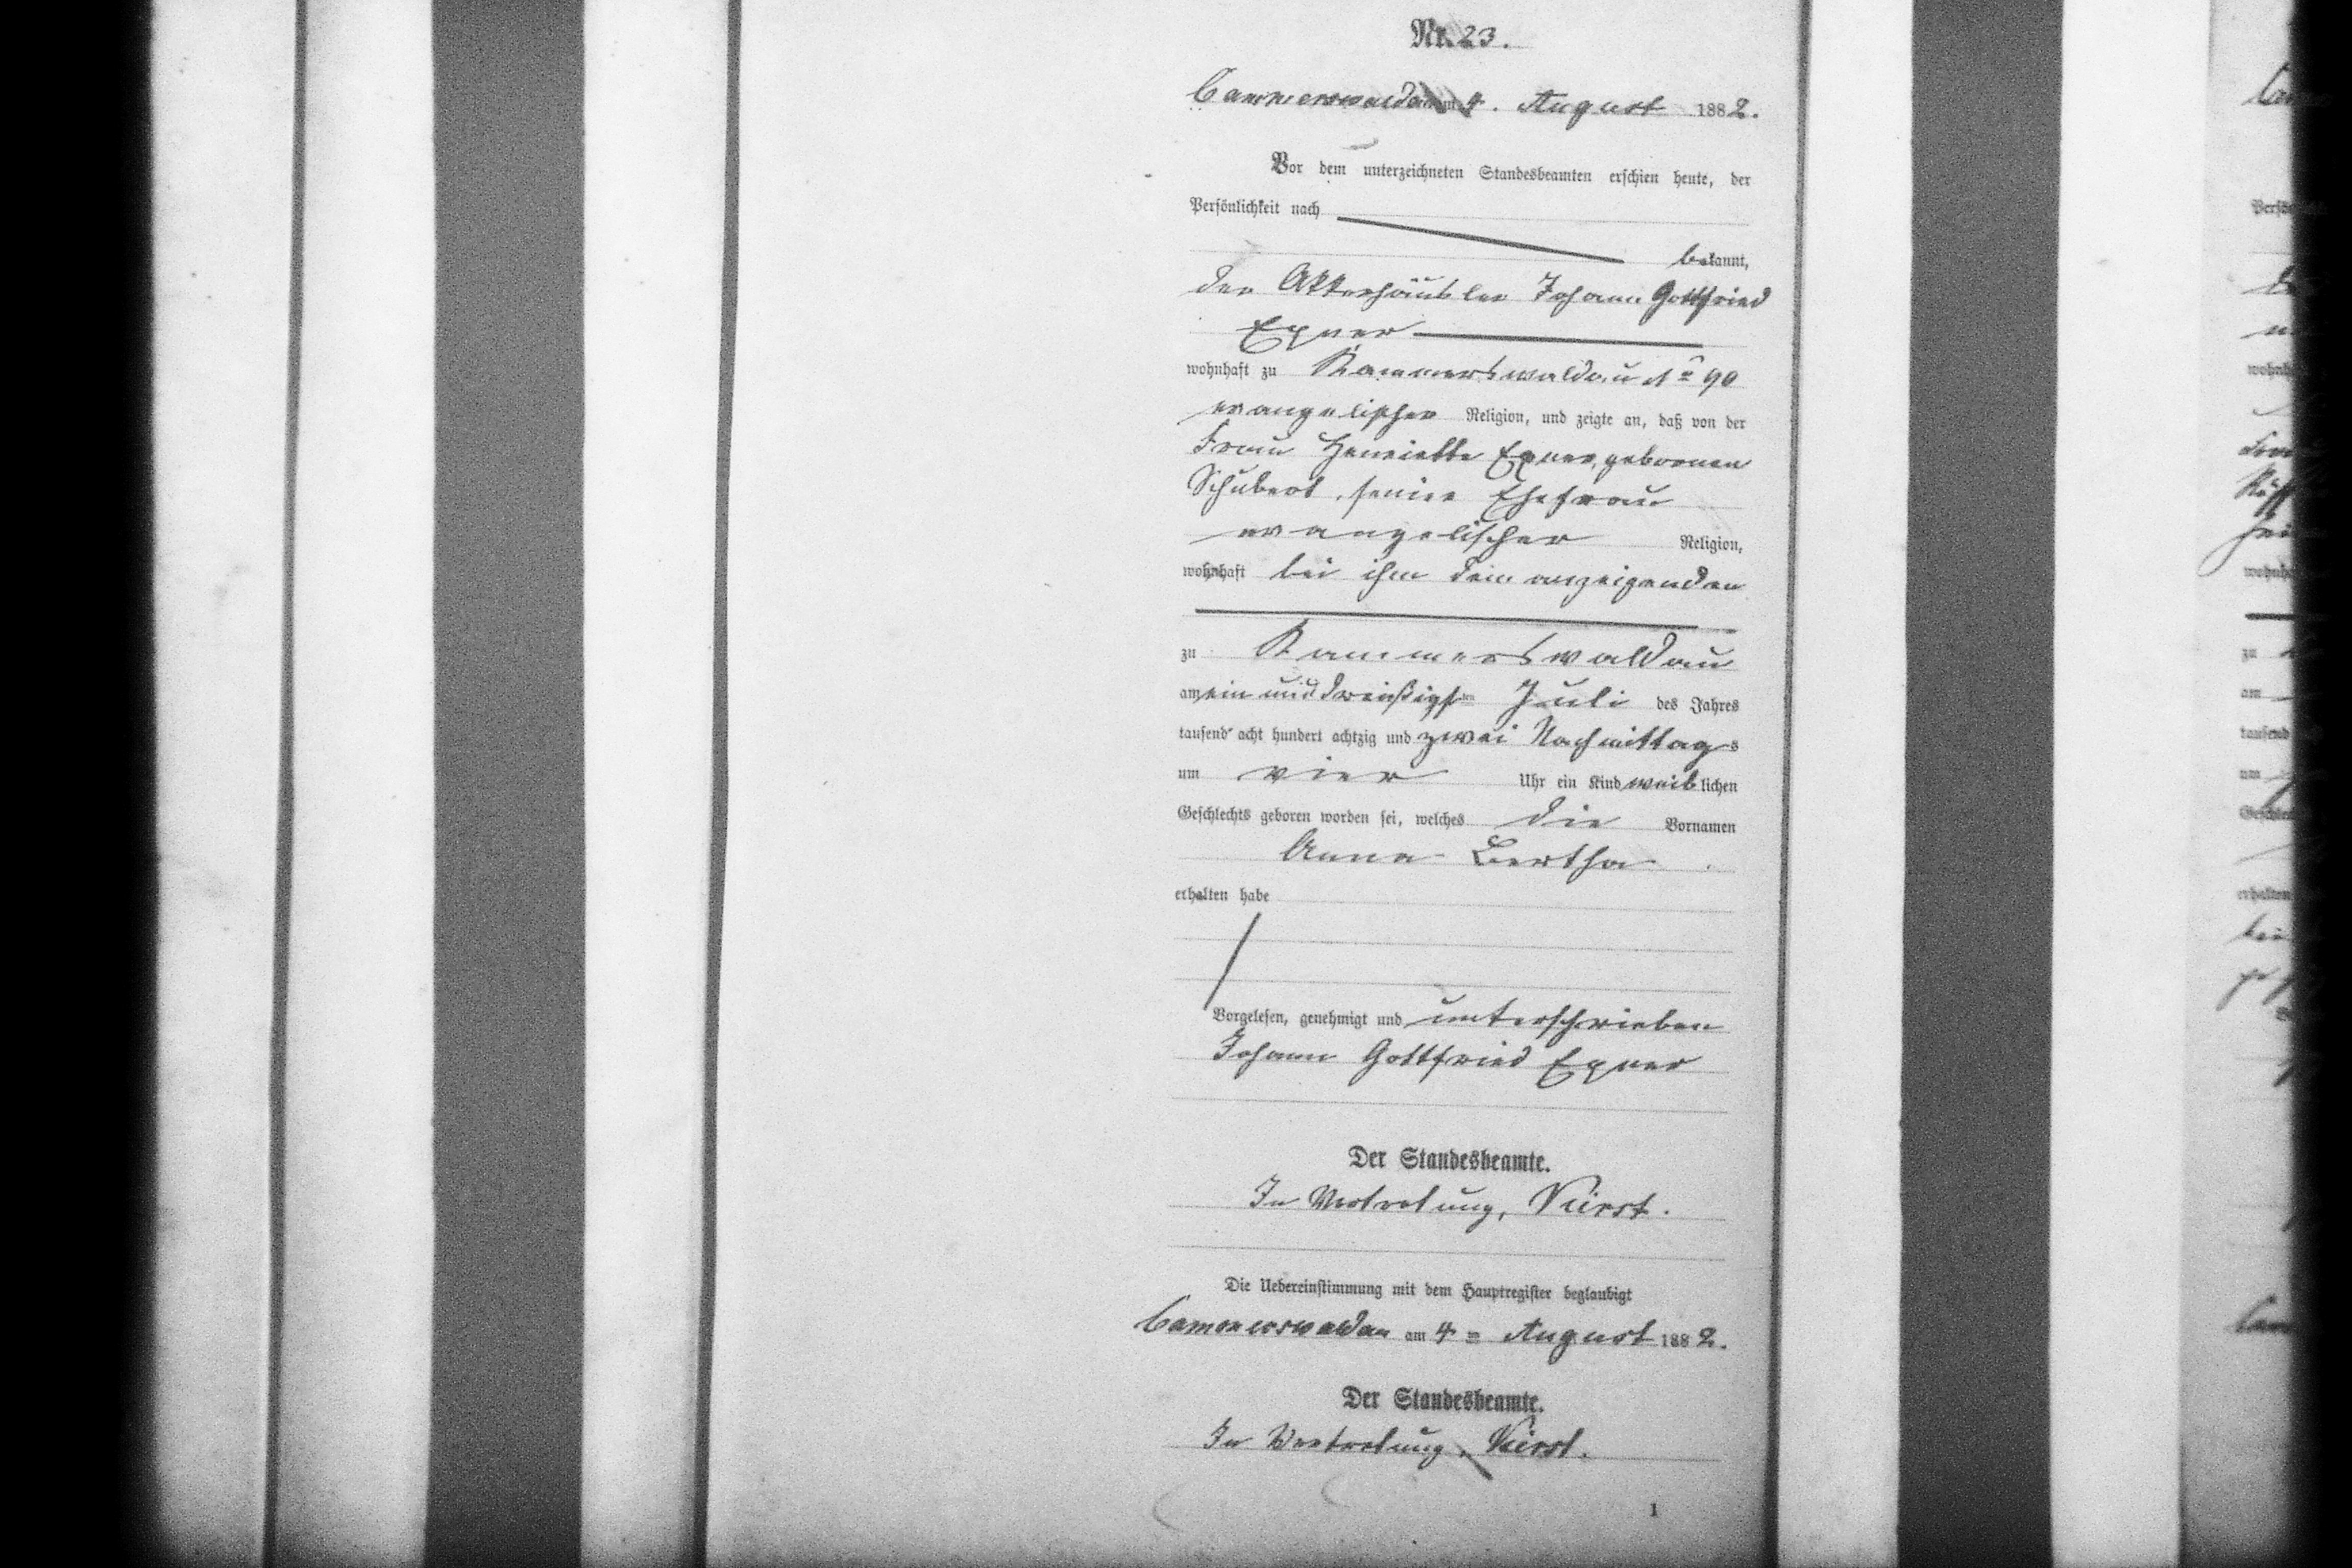 Nr. 23.
Cammerswaldau am 4. August 1882.
Vor dem unterzeichneten Standesbeamten erschien heute, der
Persönlichkeit nach
bekannt,
der Ackerhäusler Johann Gottfried
Exner
wohnhaft zu Kammerswaldau No 90
evangelischer Religion, und zeigte an, daß von der
Frau Henriette Exner, gebornen
Schubert, seiner Ehefrau
evangelischer Religion,
wohnhaft bei ihm dem anzeigenden
zu Kammerswaldau
am ein und dreißigsten Juli des Jahres
tausend acht hundert achtzig und zwei Nachmittags
um vier Uhr ein Kind weiblichen
Geschlechts geboren worden sei, welches die Vornamen
Anna Bertha
erhalten habe
Vorgelesen, genehmigt und unterschrieben
Johann Gottfried Exner
Der Standesbeamte.
In Vertretung,
Die Uebereinstimmung mit dem Hauptregister beglaubigt
Cammerswaldau am 4 = August 1882.
Der Standesbeamte.
In Vertretung,
1